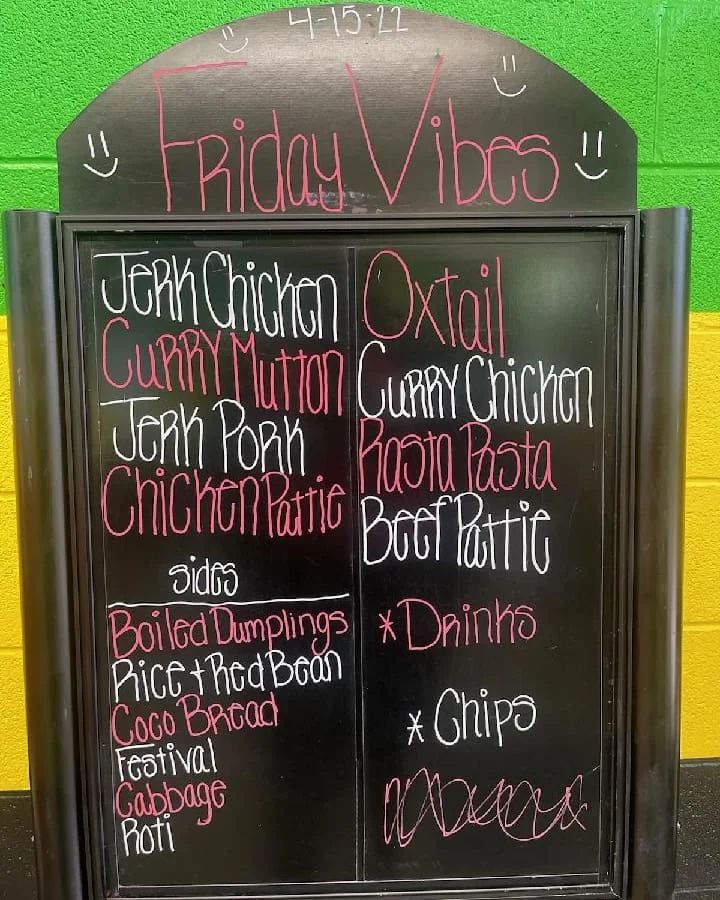 4-15-22
Friday Vibes
Jerk Chicken
Curry Mutton
Jerk Pork
Chicken Pattie
sides
Boiled Dumplings
Rice + Red Bean
Coco Bread
Festival
Cabbage
Roti
Oxtail
Curry Chicken
Rasta Pasta
Beef Pattie
*Drinks
*Chips